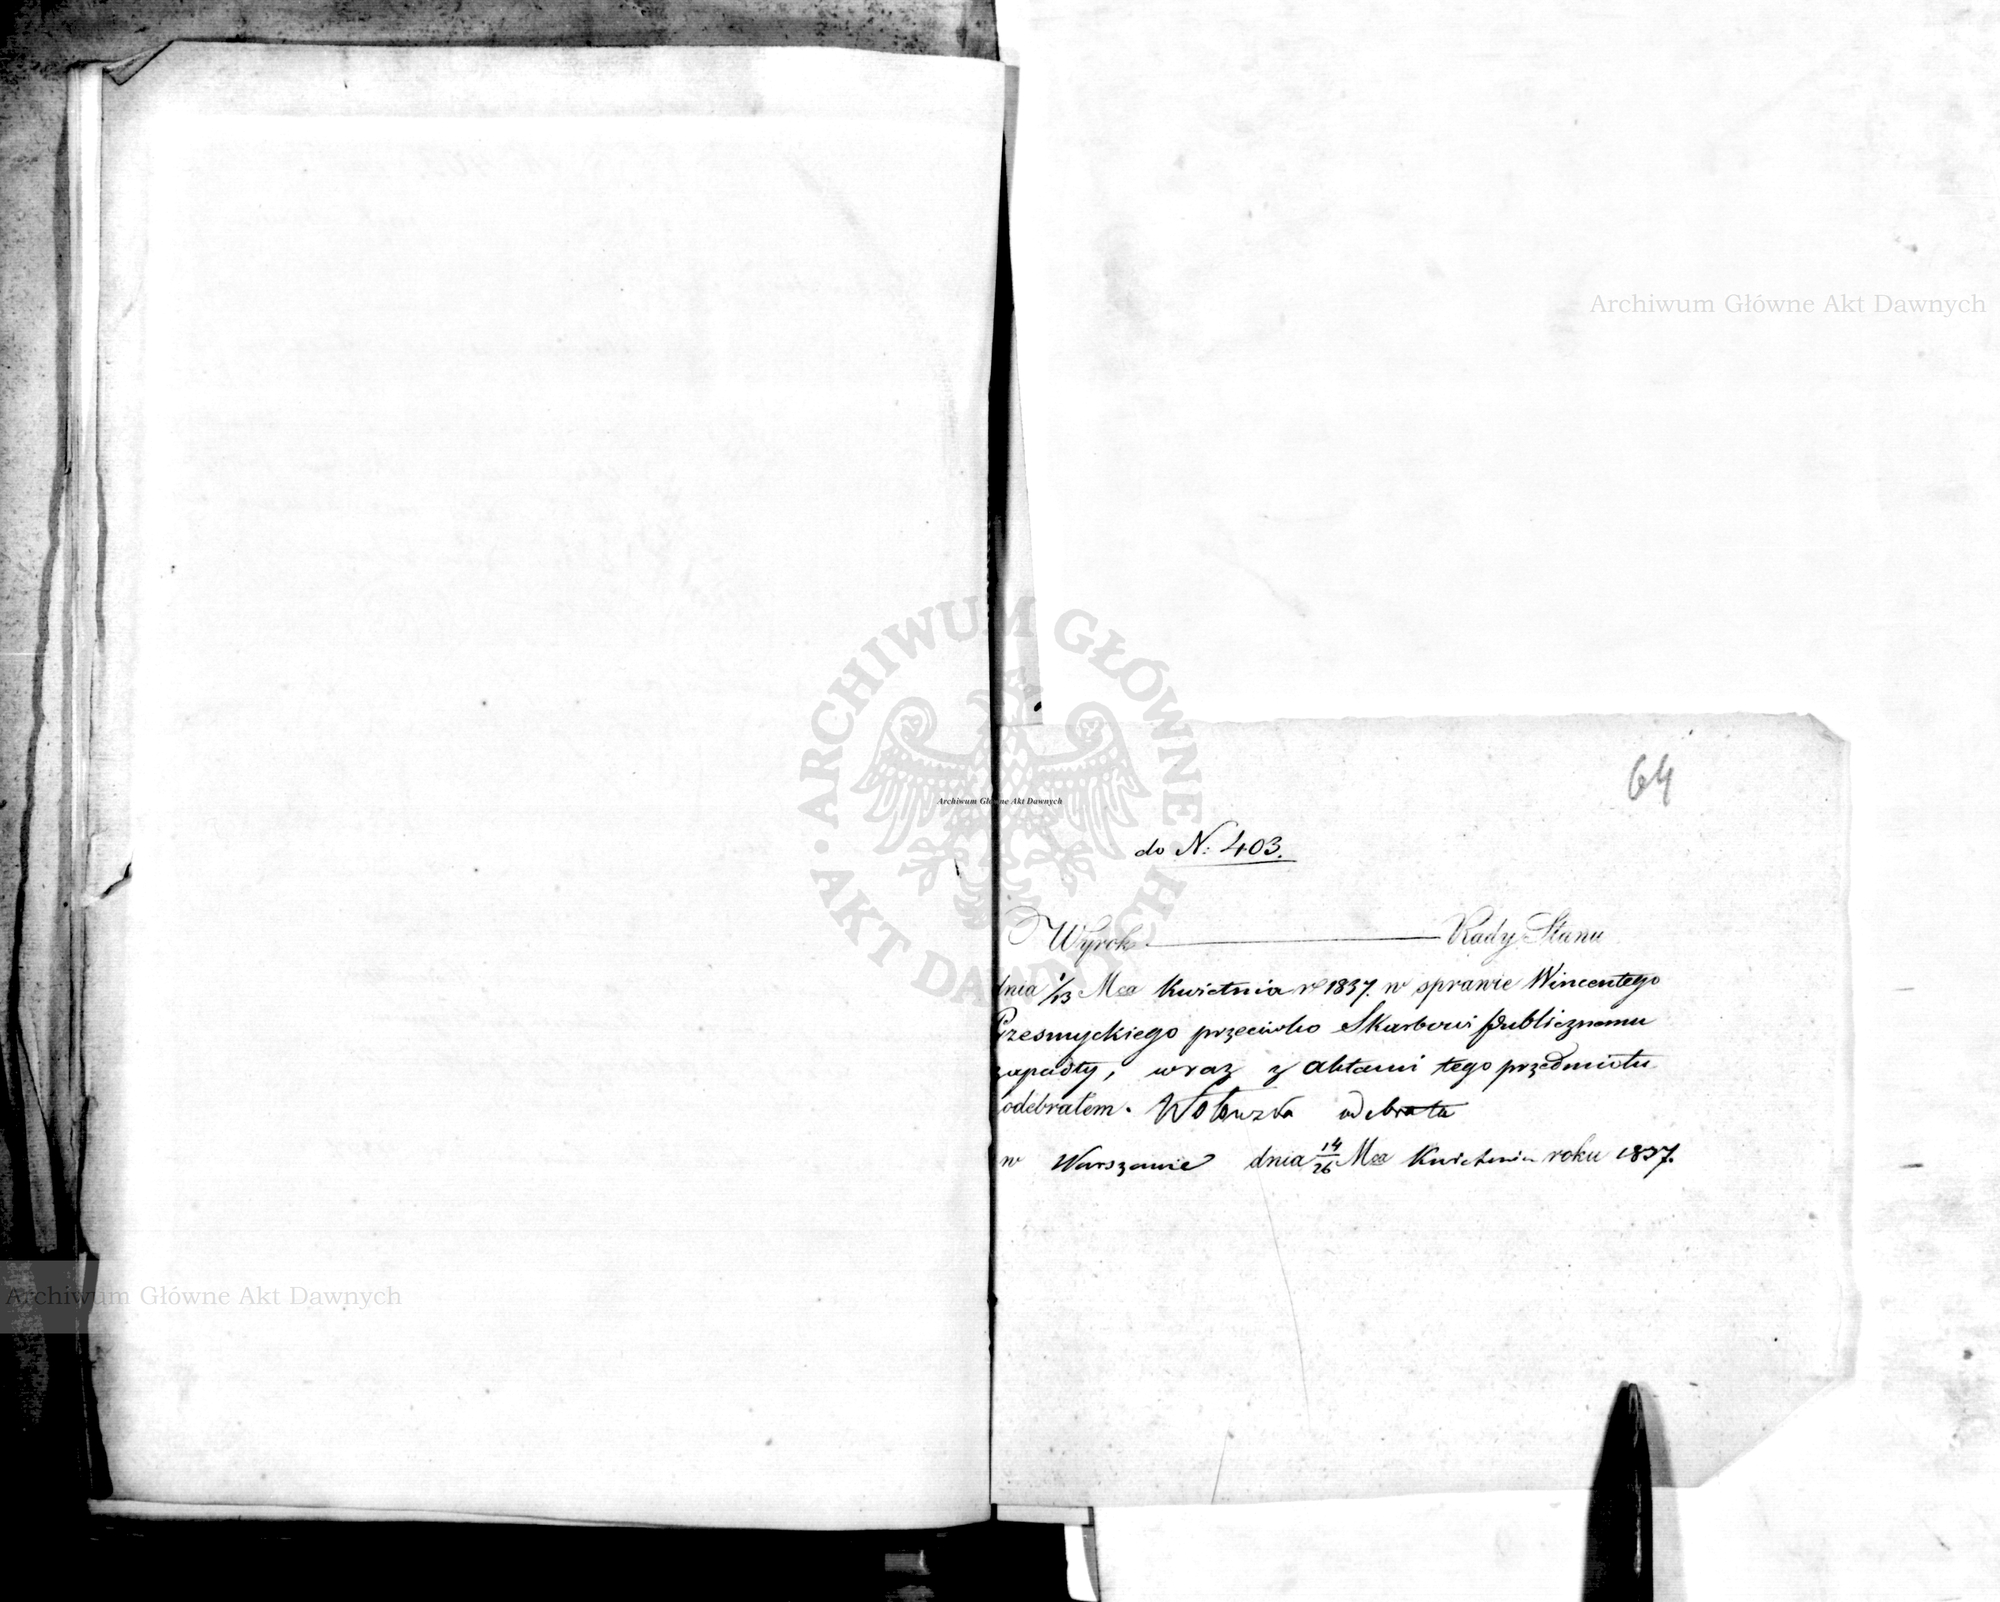 Archiwum Główne Akt Dawnych
ARCHIWUM GŁÓWNE AKT DAWNYCH
Archiwum Główne Akt Dawnych
64
do N: 403.
Wyrok ——— Rady Stanu
dnia 1/13 Mca Kwietnia r 1837. w sprawie Wincentego
Czesmyckiego przeciwko Skarbowi Publicznemu
zapadły, wraz z aktami tego przedmiotu
odebrałem.
w Warszawie dnia 14/26 Mca Kwietnia roku 1837.
Archiwum Główne Akt Dawnych